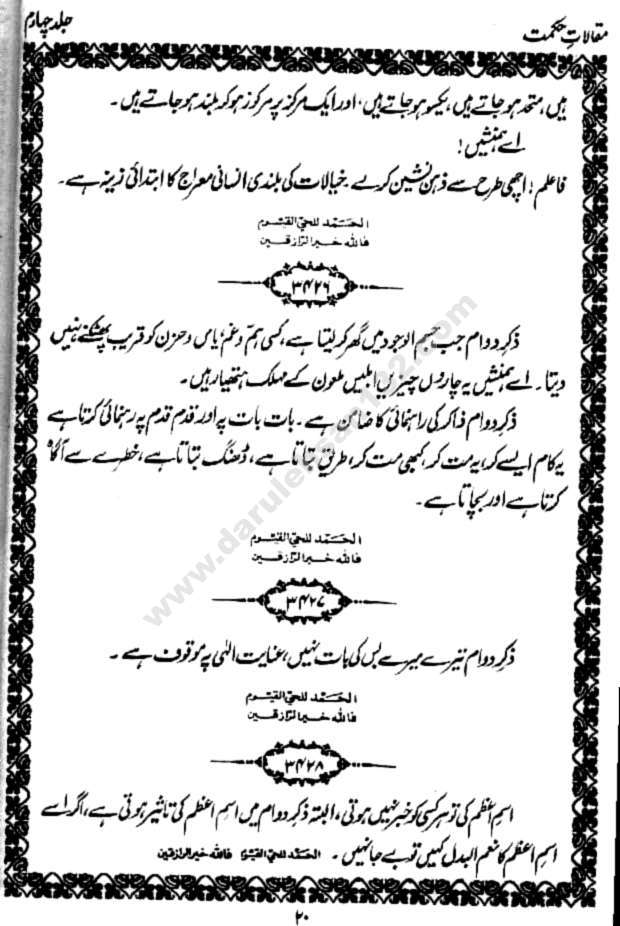 مقالاتِ حکمت
جلد چہارم
ہیں، متحد ہو جاتے ہیں، یکسو ہو جاتے ہیں، اور ایک مرکز پر مرکوز ہو کر بلند ہو جاتے ہیں۔
اے ہمنشیں!
فاعلم! اچھی طرح سے ذہن نشین کر لے۔ خیالات کی بلندی انسانی معراج کا ابتدائی زینہ ہے۔
الحمد للحی القیوم
فاللہ خیر الرازقین
۳۴۲۶
ذکرِ دوام جب جسم الوجود میں گھر کر لیتا ہے، کسی ہمّ و غم، یاس و حزن کو قریب پھٹکنے نہیں
دیتا۔ اے ہمنشیں یہ چاروں چیزیں ابلیس ملعون کے مہلک ہتھیار ہیں۔
ذکرِ دوام ذاکر کی راہنمائی کا ضامن ہے۔ بات بات پہ اور قدم قدم پہ رہنمائی کرتا ہے
یہ کام ایسے کر، یہ مت کر، کبھی مت کر، طریق بتاتا ہے، ڈھنگ بتاتا ہے، خطرے سے آگاہ
کرتا ہے اور بچاتا ہے۔
الحمد للحی القیوم
فاللہ خیر الرازقین
۳۴۲۷
ذکرِ دوام تیرے میرے بس کی بات نہیں، عنایت الٰہی پہ موقوف ہے۔
الحمد للحی القیوم
فاللہ خیر الرازقین
۳۴۲۸
اسمِ اعظم کی تو ہر کسی کو خبر نہیں ہوتی، البتہ ذکرِ دوام میں اسمِ اعظم کی تاثیر ہوتی ہے، اگر اسے
اسمِ اعظم کا نعم البدل کہیں تو بے جا نہیں۔ الحمد للحی القیوم فاللہ خیر الرازقین
۲۰
www.darulehsan122.com